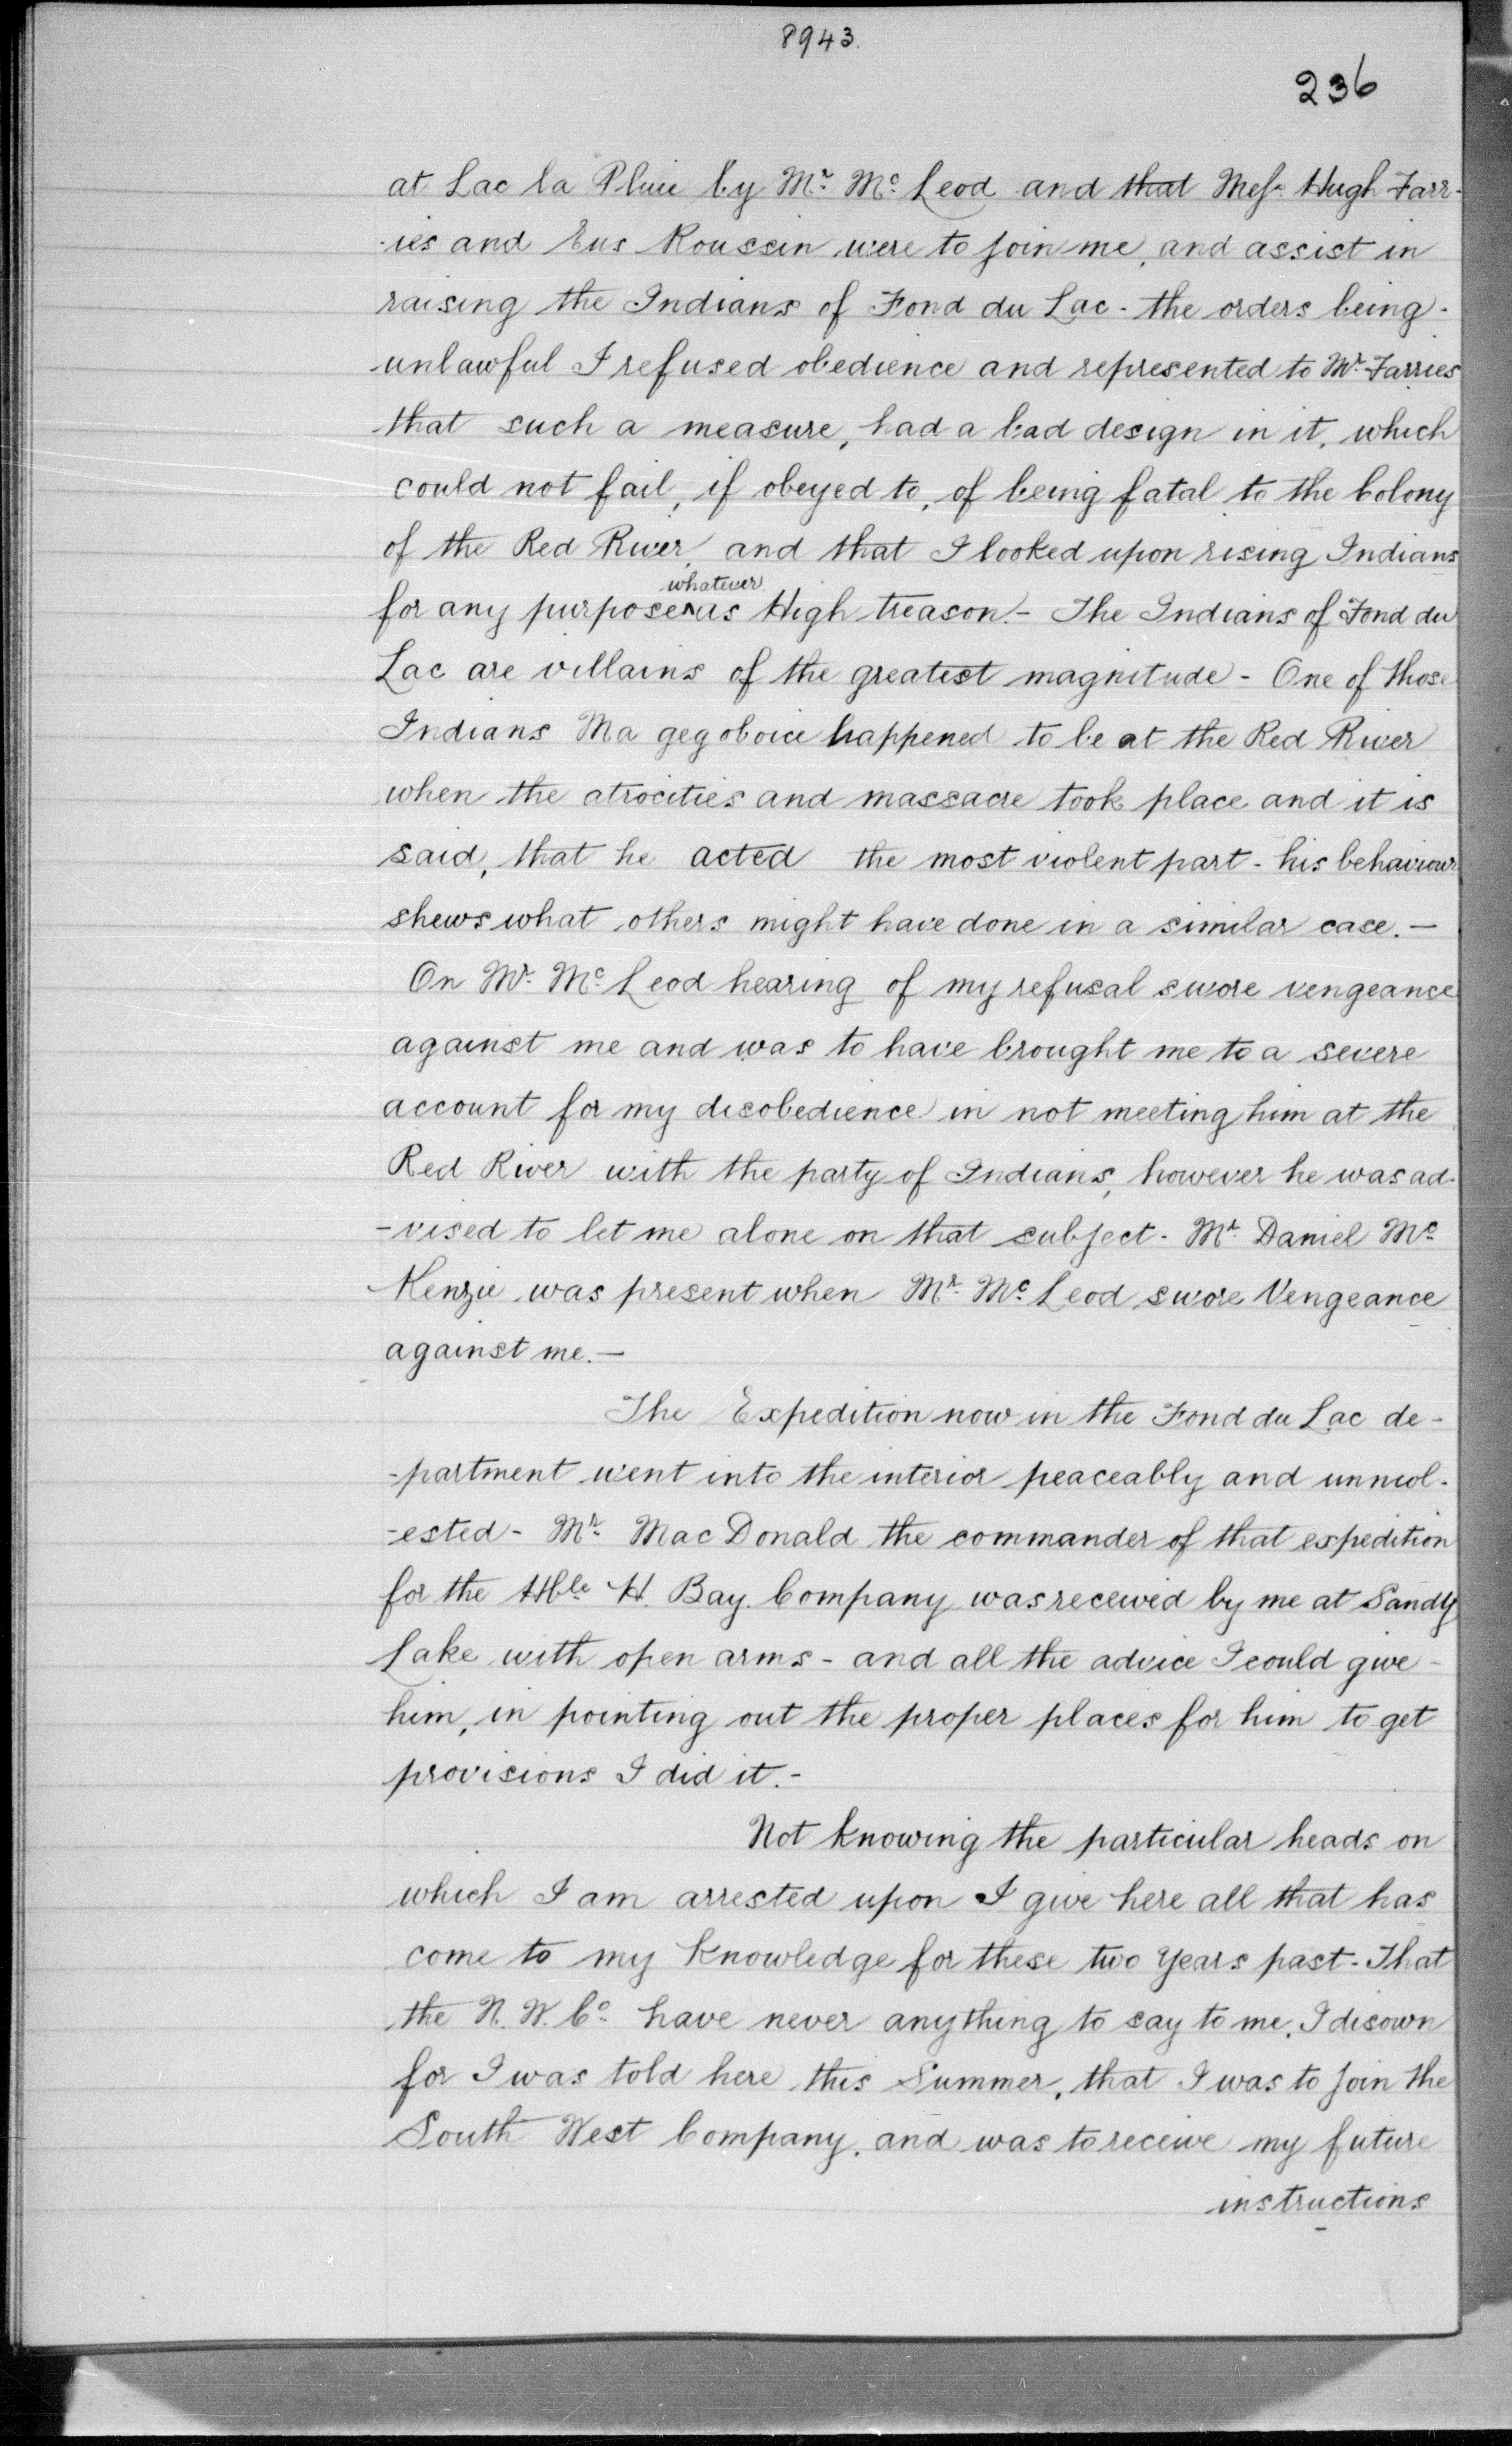 8943.
236
at Lac la Pluie by Mr. Mc. Leod and that Messrs. Hugh Farr-
-ies and Eus Roussin were to join me, and assist in
raising the Indians of Fond du Lac - the orders being -
unlawful I refused obedience and represented to Mr. Farries
that such a measure, had a bad design in it, which
could not fail, if obeyed to, of being fatal to the Colony
of the Red River, and that I looked upon rising Indians
whatever
for any purpose^as High treason. - The Indians of Fond du
Lac are villains of the greatest magnitude - One of those
Indians Ma gegoboice happened to be at the Red River
when the atrocities and massacre took place and it is
said, that he acted the most violent part - his behaviour
shews what others might have done in a similar case. —
On Mr. Mc. Leod hearing of my refusal swore vengeance
against me and was to have brought me to a severe
account for my disobedience in not meeting him at the
Red River with the party of Indians, however he was ad-
-vised to let me alone on that subject - Mr. Daniel Mc.
Kenzie was present when Mr. Mc. Leod swore Vengeance
against me. —
The Expedition now in the Fond du Lac de-
-partment went into the interior peaceably and unmol-
-ested - Mr. Mac Donald the commander of that expedition
for the Hble H. Bay Company was received by me at Sandy
Lake with open arms - and all the advice I could give -
him, in pointing out the proper places for him to get
provisions I did it. -
Not knowing the particular heads on
which I am arrested upon I give here all that has
come to my knowledge for these two years past - That
the N. W. Co. have never anything to say to me, I disown
for I was told here this Summer, that I was to join the
South West Company, and was to receive my future
instructions